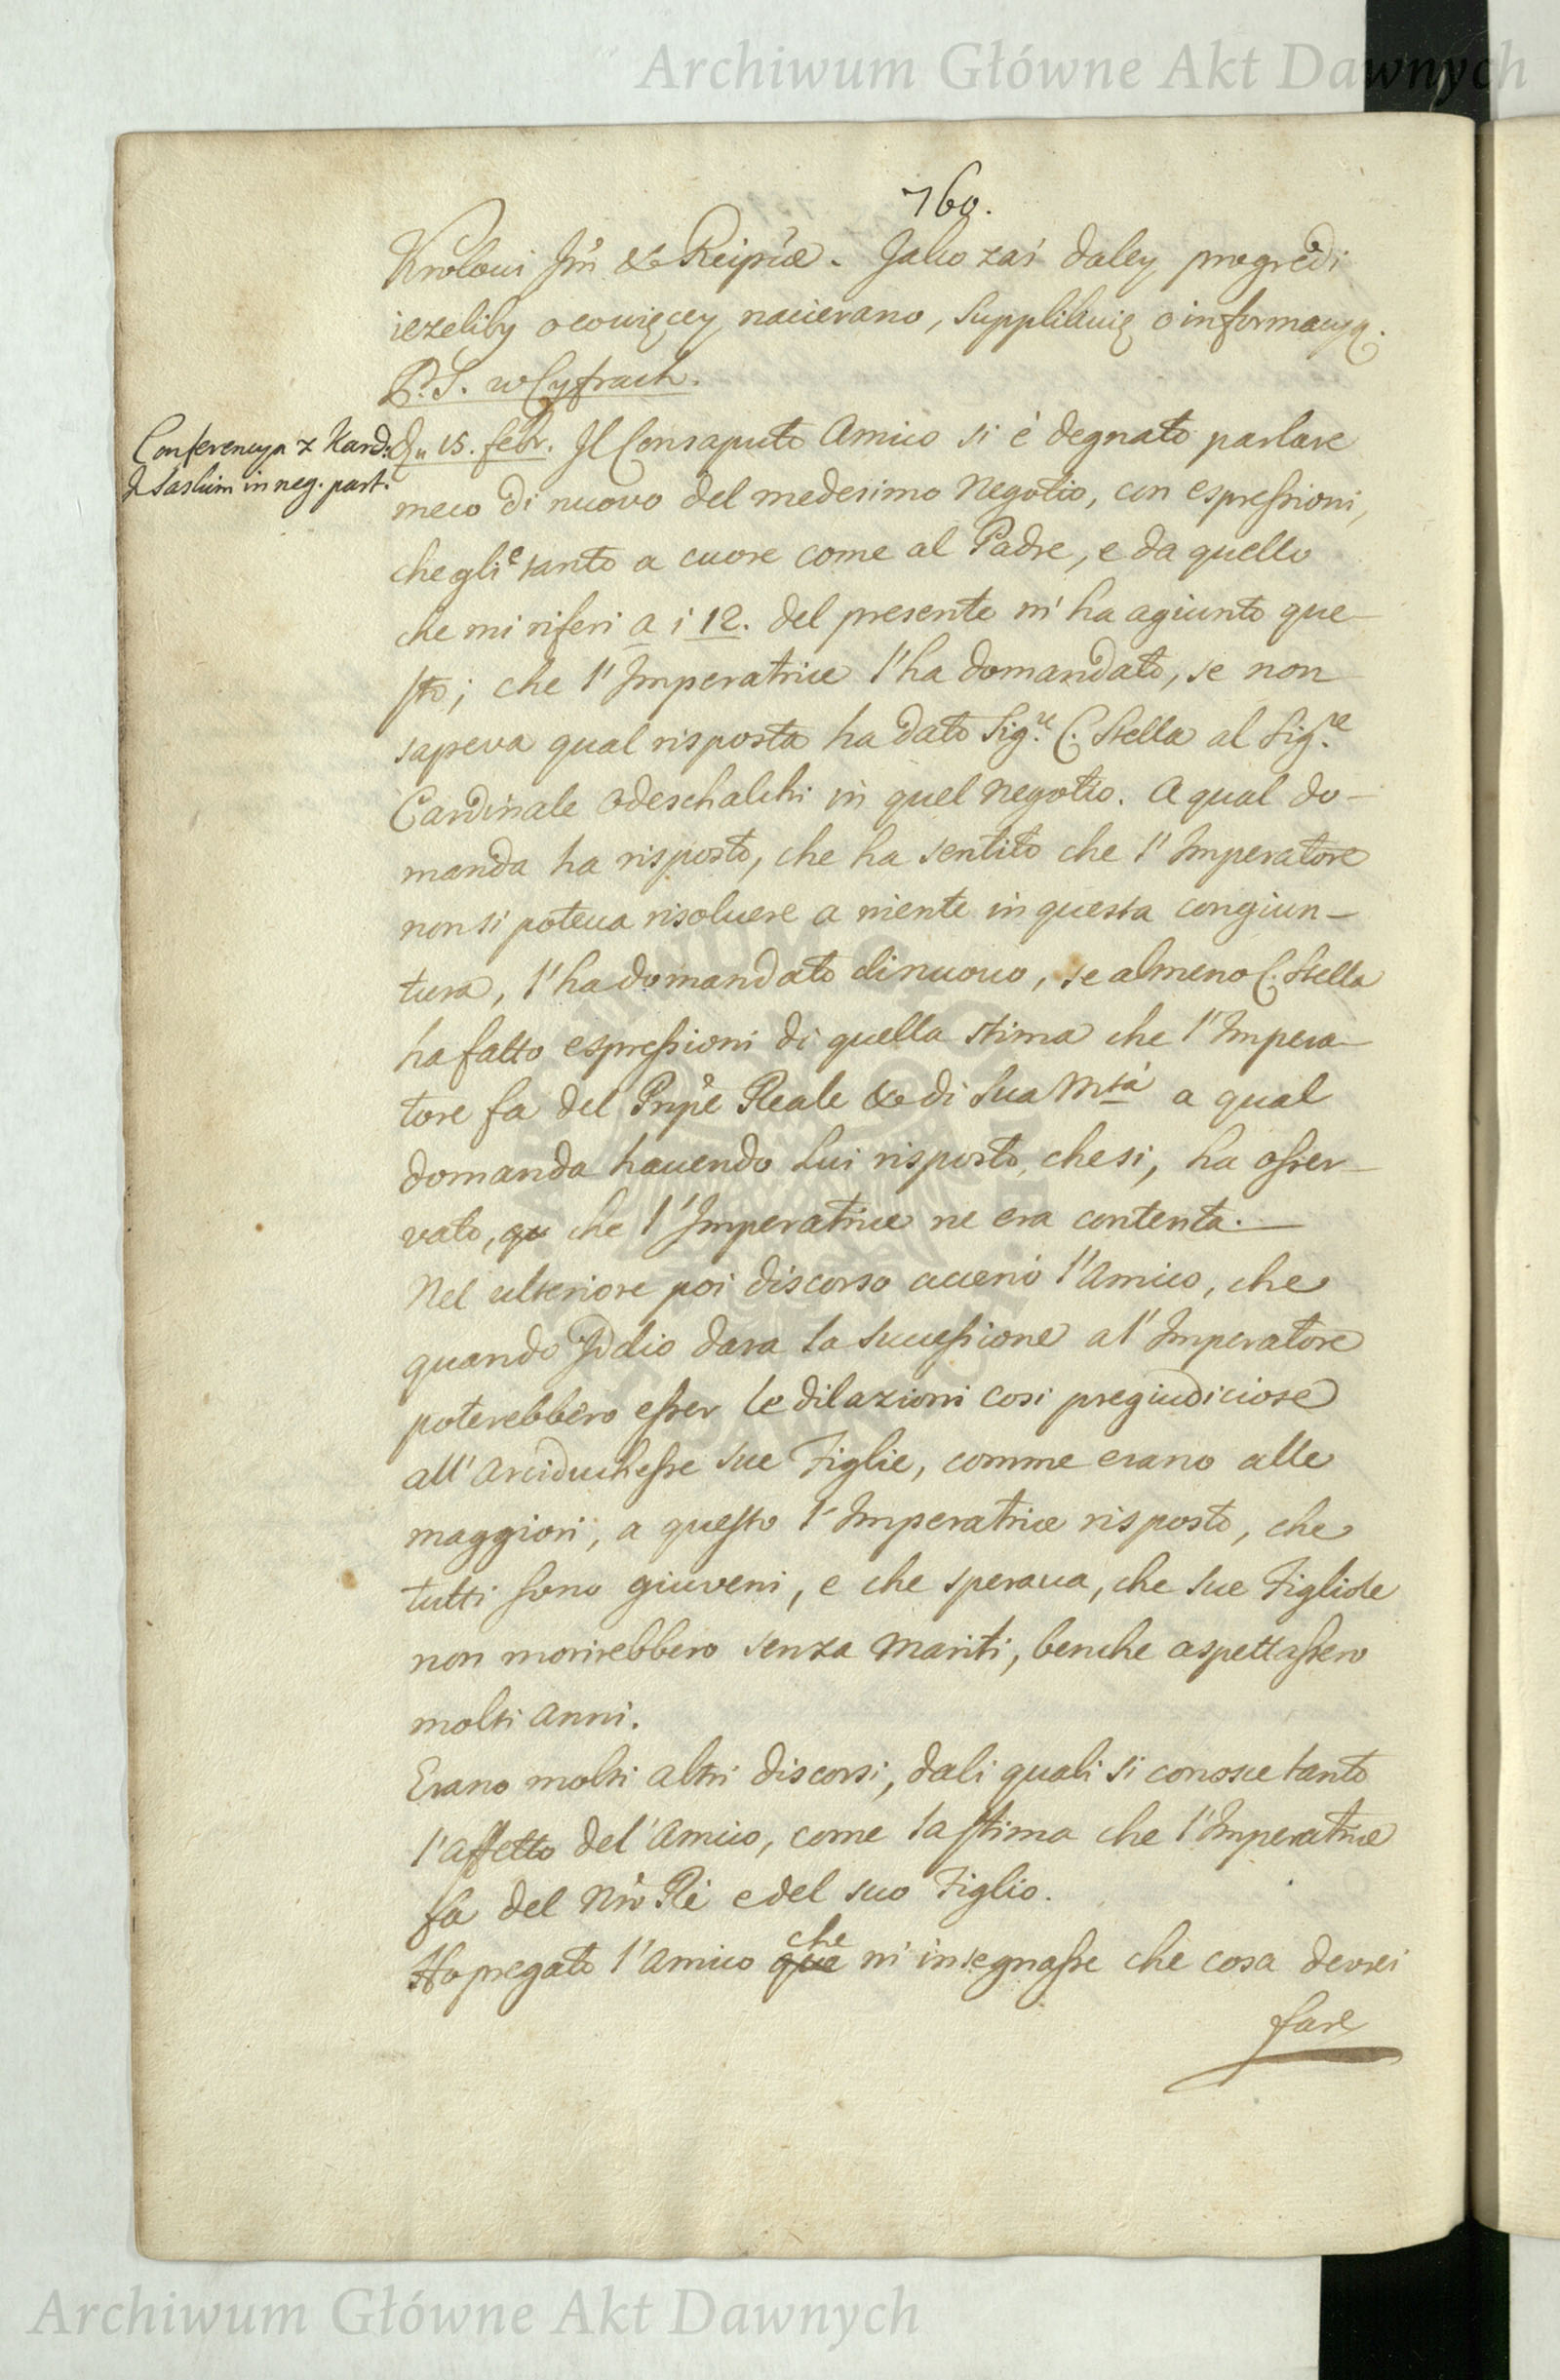 Archiwum Główne Akt Dawnych
760.
Królowi Jm̃ & Reipcæ. Jako zaś daley progredi
ieżeliby ocowięcey nacierano, Supplikuię o informacyą.
P.S. w Cyfrach.
Conferencya z Kard:
d Saslum in neg. part.
D. 15. febr. Il Consaputo Amico si è degnato parlare
meco di nuovo del medesimo Negotio, con espressioni,
che gli è tanto a cuore come al Padre, e da quello
che mi riferi a i 12. del presente m'ha agiunto que-
sto; che l'Imperatrice l'ha domandato, se non
sapeva qual risposta ha dato Sig.re C. Stella al Sig.re
Cardinale Odeschalchi in quel negotio. A qual do-
manda ha risposto, che ha sentito che l'Imperatore
non si poteua risoluere a niente in questa congiun-
tura, l'ha domandato di nuouo, se almeno C. Stella
ha fatto espressioni di quella stima che l'Impera-
tore fa del Prnpẽ Reale & di Sua Mstà a qual
domanda hauendo Lui risposto, che si, ha osser-
vato, qu che l'Imperatrice ne era contenta.
Nel ulteriore poi discorso accenò l'Amico, che
quando Iddio dara la Successione al'Imperatore
poterebbero esser le dilazioni cosi pregiudiciose
all'Arciduchesse sue Figlie, comme erano alle
maggiori, a questo l'Imperatrice risposto, che
tutti sono giuveni, e che speraua, che sue Figliole
non morirebbero senza Mariti, benche aspettassero
molti Anni.
Erano molti altri discorsi, dali quali si conosce tanto
l'Affetto del'Amico, come la stima che l'Imperatrice
fa del Nrõ Rè e del suo Figlio.
Ho pregato l'Amico que che m'insegnasse che cosa devrei
fare
Archiwum Główne Akt Dawnych